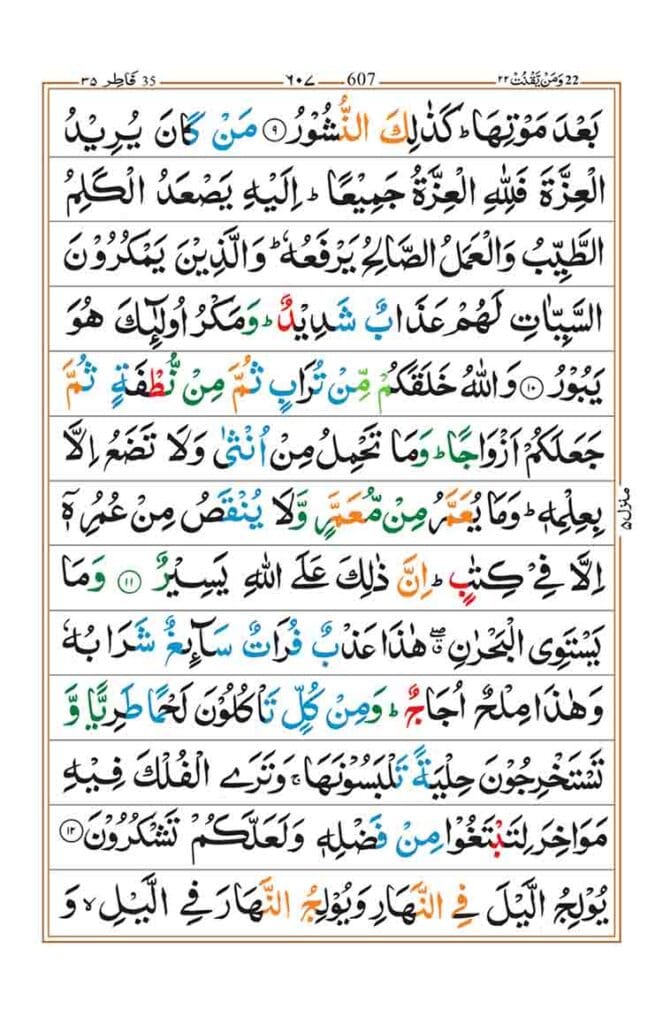 35 فَاطِر ٣٥ ٦٠٧ 607 22 وَمَنْ يَّقْنُتْ ٢٢
بَعْدَ مَوْتِهَا ؕ كَذٰلِكَ النُّشُوْرُ ۹ مَنْ كَانَ يُرِيْدُ
الْعِزَّةَ فَلِلّٰهِ الْعِزَّةُ جَمِيْعًا ؕ اِلَيْهِ يَصْعَدُ الْكَلِمُ
الطَّيِّبُ وَالْعَمَلُ الصَّالِحُ يَرْفَعُهٗ ؕ وَالَّذِيْنَ يَمْكُرُوْنَ
السَّيِّاٰتِ لَهُمْ عَذَابٌ شَدِيْدٌ ؕ وَمَكْرُ اُولٰٓئِكَ هُوَ
يَبُوْرُ ۱۰ وَاللّٰهُ خَلَقَكُمْ مِّنْ تُرَابٍ ثُمَّ مِنْ نُّطْفَةٍ ثُمَّ
جَعَلَكُمْ اَزْوَاجًا ؕ وَمَا تَحْمِلُ مِنْ اُنْثٰى وَلَا تَضَعُ اِلَّا
بِعِلْمِهٖ ؕ وَمَا يُعَمَّرُ مِنْ مُّعَمَّرٍ وَّلَا يُنْقَصُ مِنْ عُمُرِهٖۤ
اِلَّا فِيْ كِتٰبٍ ؕ اِنَّ ذٰلِكَ عَلَى اللّٰهِ يَسِيْرٌ ۱۱ وَمَا
يَسْتَوِى الْبَحْرٰنِ ۖ هٰذَا عَذْبٌ فُرَاتٌ سَآئِغٌ شَرَابُهٗ
وَهٰذَا مِلْحٌ اُجَاجٌ ؕ وَمِنْ كُلٍّ تَاْكُلُوْنَ لَحْمًا طَرِيًّا وَّ
تَسْتَخْرِجُوْنَ حِلْيَةً تَلْبَسُوْنَهَا ۚ وَتَرَى الْفُلْكَ فِيْهِ
مَوَاخِرَ لِتَبْتَغُوْا مِنْ فَضْلِهٖ وَلَعَلَّكُمْ تَشْكُرُوْنَ ۱۲
يُوْلِجُ الَّيْلَ فِى النَّهَارِ وَيُوْلِجُ النَّهَارَ فِى الَّيْلِ ۙ وَ
منزل ۵